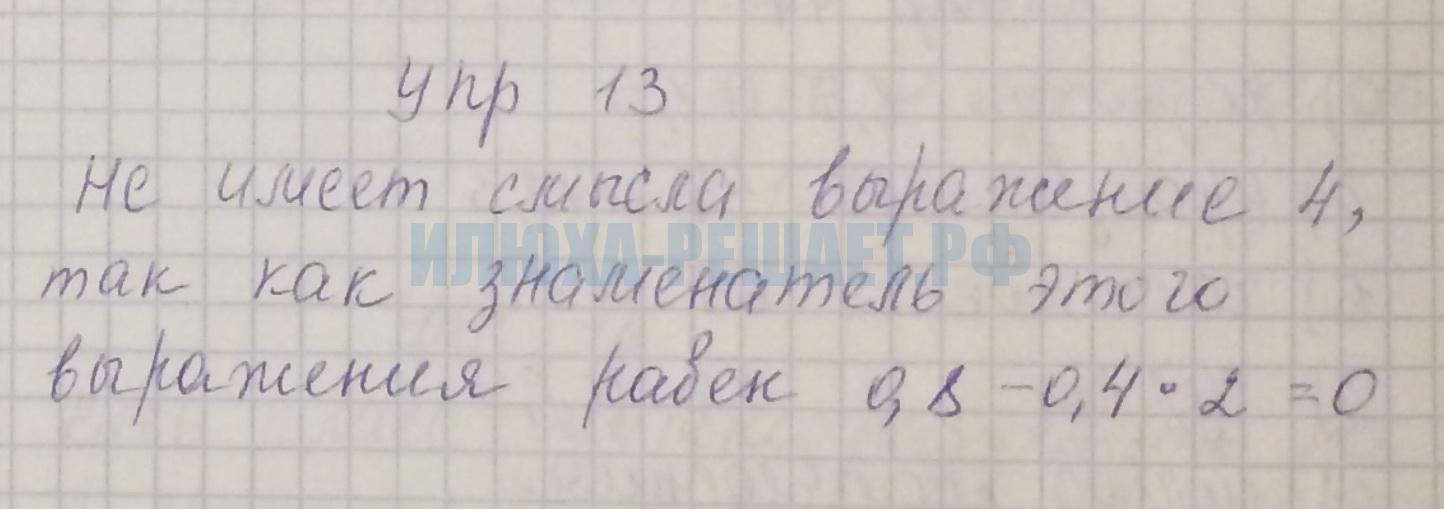 упр 13
Не имеет смысла выражение 4,
ИЛЮХА-РЕШАЕТ.РФ
так как знаменатель этого
выражения равен 0,8 - 0,4 · 2 = 0